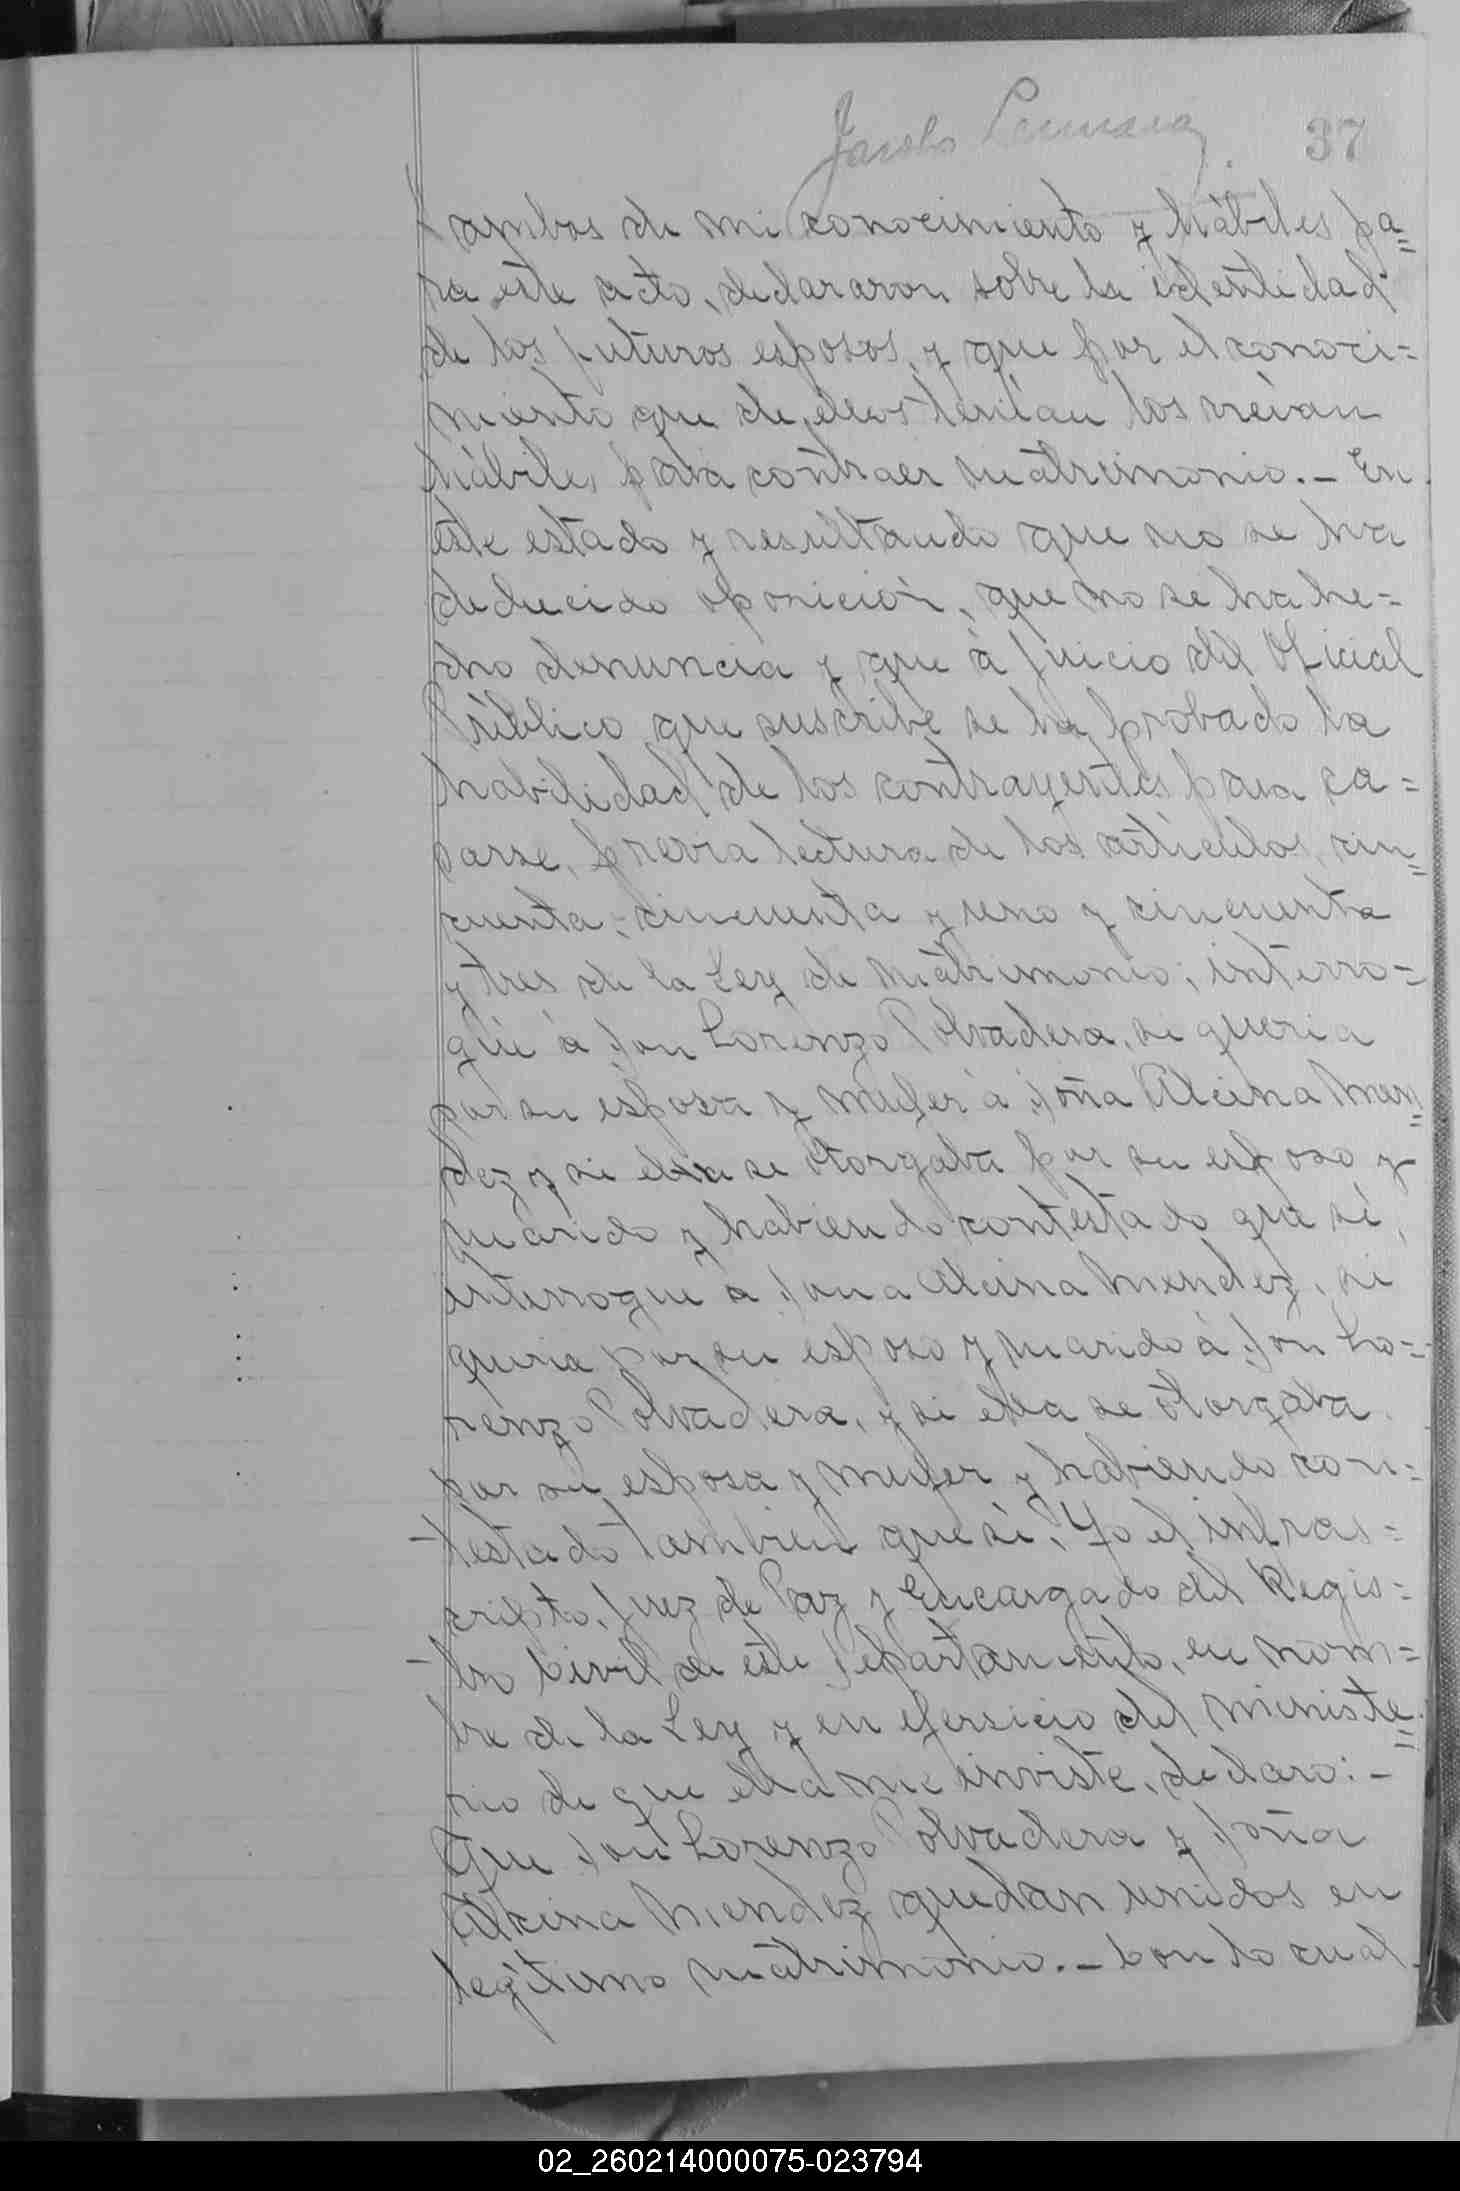 Jacobo
37
ambos de mi conocimiento y hábiles pa=
ra este acto, declararon sobre la identidad
de los futuros esposos, y que por el conoci=
miento que de ellos tenían los creían
hábiles para contraer matrimonio.- En
este estado y resultando que no se ha
deducido oposición, que no se ha he=
cho denuncia y que á juicio del Oficial
Público que suscribe se ha probado la
habilidad de los contrayentes para ca=
sarse, previa lectura de los artículos, cin=
cuenta; cincuenta y uno y cincuenta
y tres de la Ley de Matrimonio; interro=
gué á Don Lorenzo Polvadera, si queria
por su esposa y mujer á Doña Alcina Men=
dez y si el se otorgaba por su esposo y
marido y habiendo contestado que sí,
interrogué a Doña Alcina Mendez, si
queria por su esposo y marido á Don Lo=
renzo Polvadera, y si ella se otorgaba
por su esposa y mujer y habiendo con=
testado tambien que sí: Yo el infras=
cripto, Juez de Paz y Encargado del Regis=
tro Civil de este Departamento, en nom=
bre de la Ley y en ejersicio del ministe=
rio de que ella me inviste, declaro: -
Que Don Lorenzo Polvadera y Doña
Alcina Mendez quedan unidos en
legítimo matrimonio.- Con lo cual
02_260214000075-023794